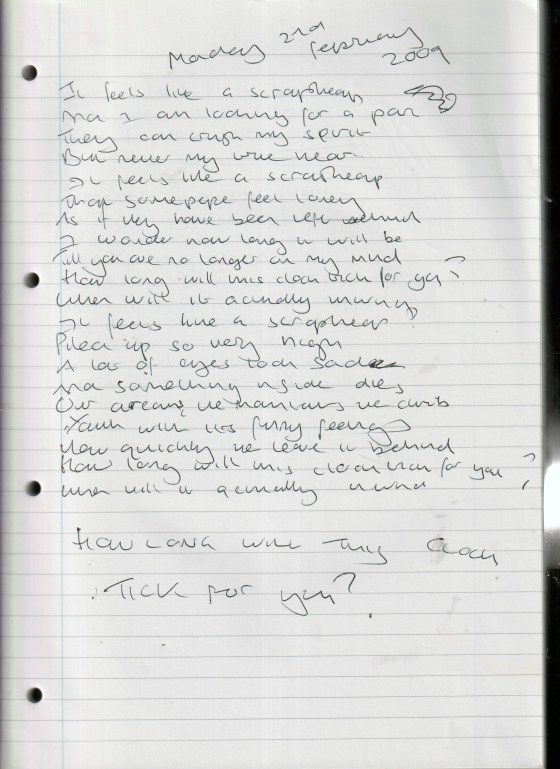 Monday 2nd February 2009
It feels like a scrapheap
And I am looking for a pair
They can crush my spirit
But never my
It feels like a scrapheap
That some people feel lonely
As if they have been left behind
I wonder how long it will be
Till you are no longer on my mind
How long will this clock tick for you?
When will it actually unwind
It feels like a scrapheap?
Piled up so very high
A lot of eyes look sad
And something inside dies
Our dreams, the mountains we climb
Youth with its funny feelings
How quickly we leave it behind
How long will this clock tick for you?
When will it actually unwind
How long will this clock
Tick for you?